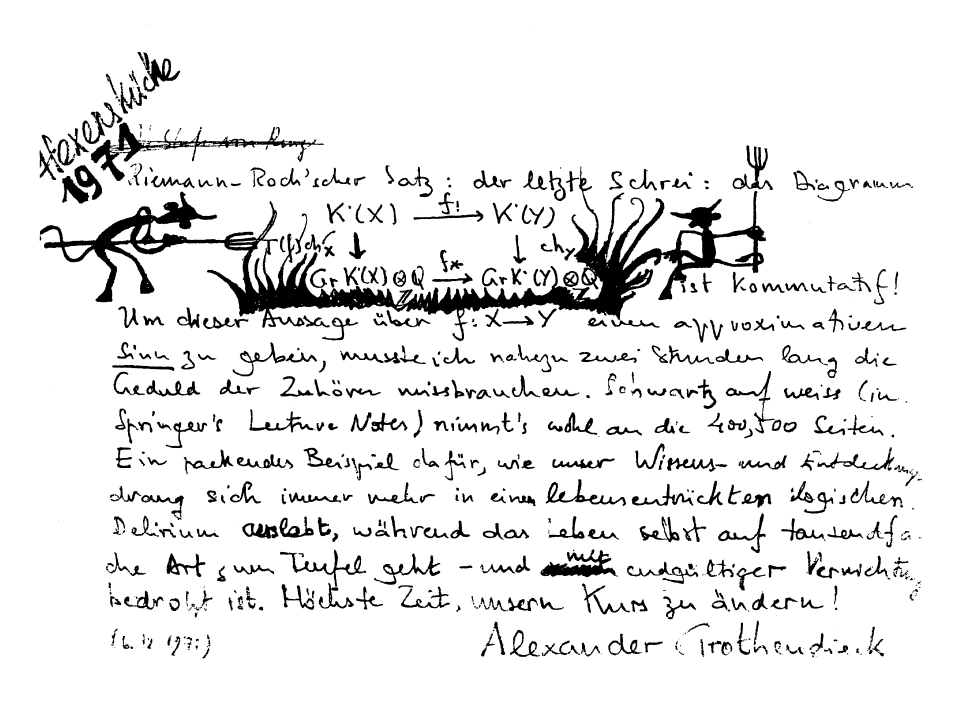 Hexenküche
1971
Riemann-Roch'scher Satz: der letzte Schrei: das Diagramm
K˙(X) f! → K˙(Y)
↓ ↓ chY
Gr K˙(X)⊗Q f* → Gr K˙(Y)⊗Q
Z Z
ist kommutatif!
Um dieser Aussage über f: X → Y einen approximativen
Sinn zu geben, musste ich nahezu zwei Stunden lang die
Geduld der Zuhörer missbrauchen. Schwartz auf weiss (in
Springer's Lecture Notes) nimmt's wohl an die 400, 500 Seiten.
Ein packendes Beispiel dafür, wie unser Wissens- und Entdeckungs
drang sich immer mehr in einem lebensentrückten logischen
Delirium auslebt, während das Leben selbst auf tausendfa
che Art zum Teufel geht - und mit endgültiger Vernichtung
bedroht ist. Höchste Zeit, unsern Kurs zu ändern!
Alexander Grothendieck